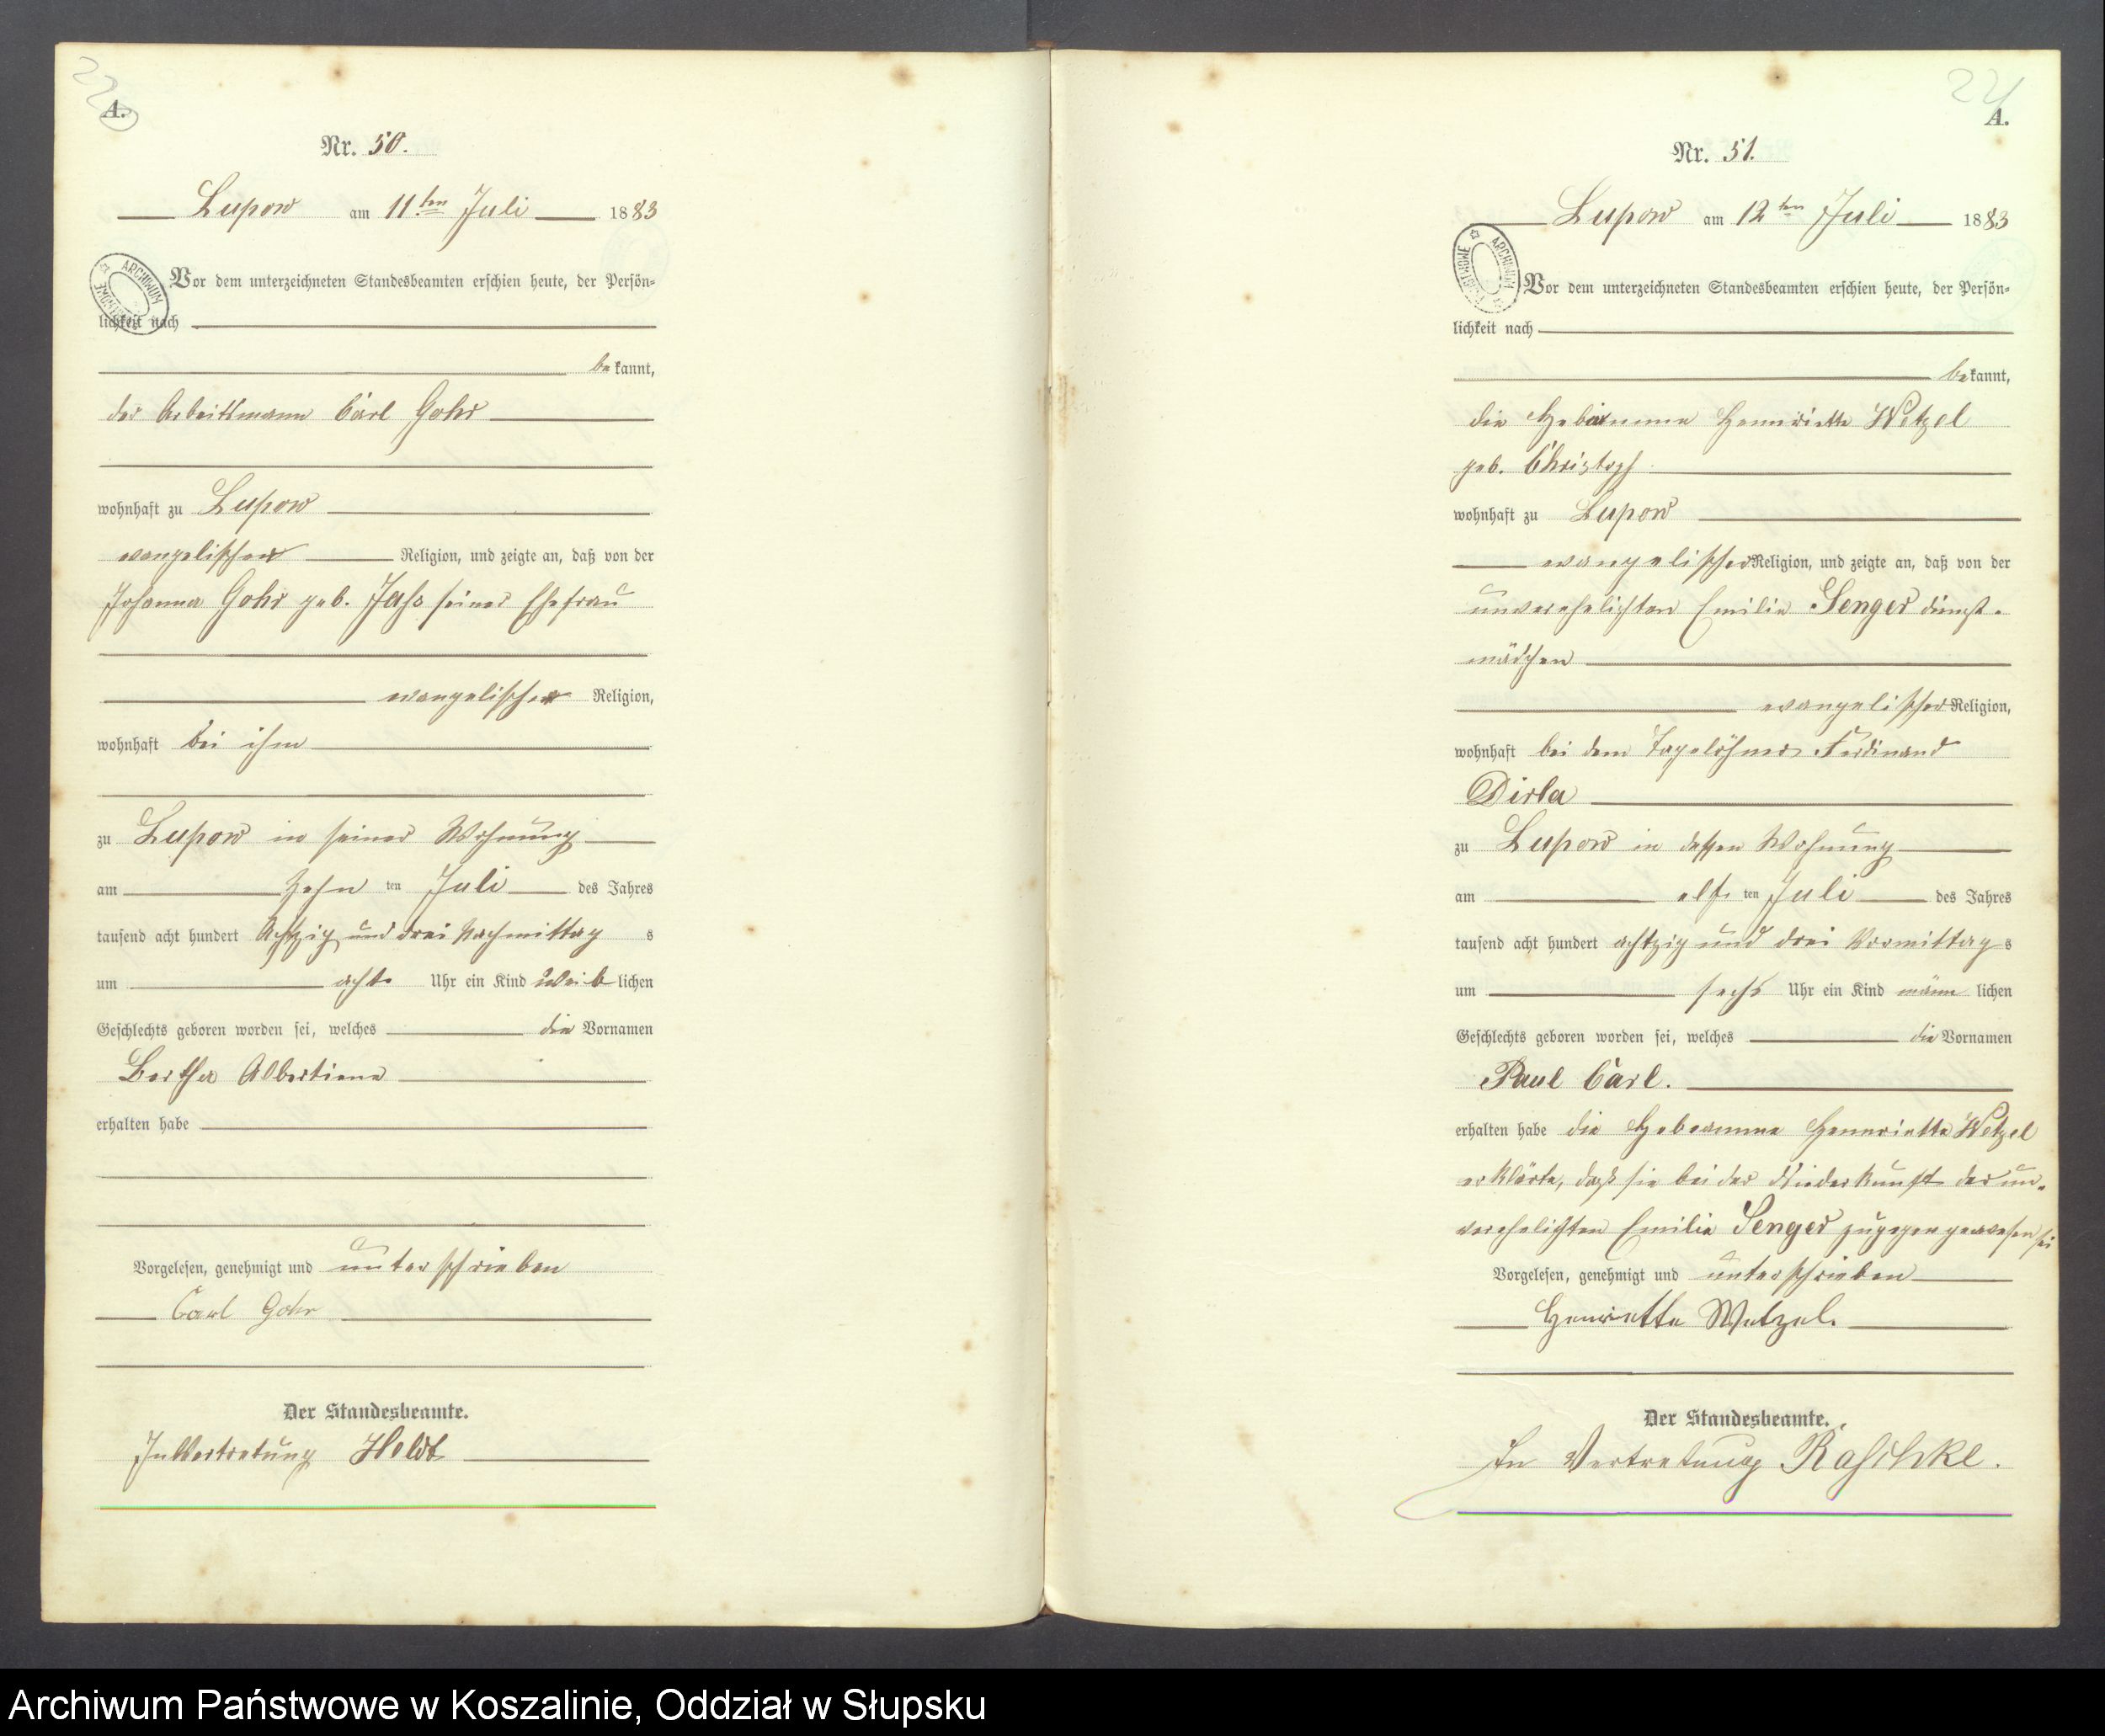 A.
Nr. 50.
Lupow am 11ten Juli 1883
ARCHIWUM PAŃSTWOWE
Vor dem unterzeichneten Standesbeamten erschien heute, der Persön-
lichkeit nach
bekannt,
der Arbeitsmann Carl Gohr
wohnhaft zu Lupow
evangelischer Religion, und zeigte an, daß von der
Johanna Gohr geb. seiner Ehefrau
evangelischer Religion,
wohnhaft bei ihm
zu Lupow in seiner Wohnung
am zehn ten Juli des Jahres
tausend acht hundert Achtzig und drei Nachmittag s
um acht Uhr ein Kind weib lichen
Geschlechts geboren worden sei, welches die Vornamen
Bertha Albertiene
erhalten habe
Vorgelesen, genehmigt und unterschrieben
Carl Gohr
Der Standesbeamte.
In Vertretung Holdt
22
A.
Nr. 51.
Lupow am 12ten Juli 1883
ARCHIWUM PAŃSTWOWE
Vor dem unterzeichneten Standesbeamten erschien heute, der Persön-
lichkeit nach
bekannt,
die Hebeamme Hennriette Wetzel
geb. Christoph
wohnhaft zu Lupow
evangelischer Religion, und zeigte an, daß von der
unverehelichten Emilie Senger dienst-
mädchen
evangelischer Religion,
wohnhaft bei dem Tagelöhner Ferdinand
Dirla
zu Lupow in dessen Wohnung
am elf ten Juli des Jahres
tausend acht hundert achtzig und drei Vormittag s
um sechs Uhr ein Kind männ lichen
Geschlechts geboren worden sei, welches die Vornamen
Paul Carl.
erhalten habe die Hebeamme Hennriette Wetzel
erklärte, daß sie bei der Niederkunft der un-
verehelichten Emilie Senger zugegen gewesen sei
Vorgelesen, genehmigt und unterschrieben
Henriette Wetzel.
Der Standesbeamte.
In Vertretung Raschke.
Archiwum Państwowe w Koszalinie, Oddział w Słupsku